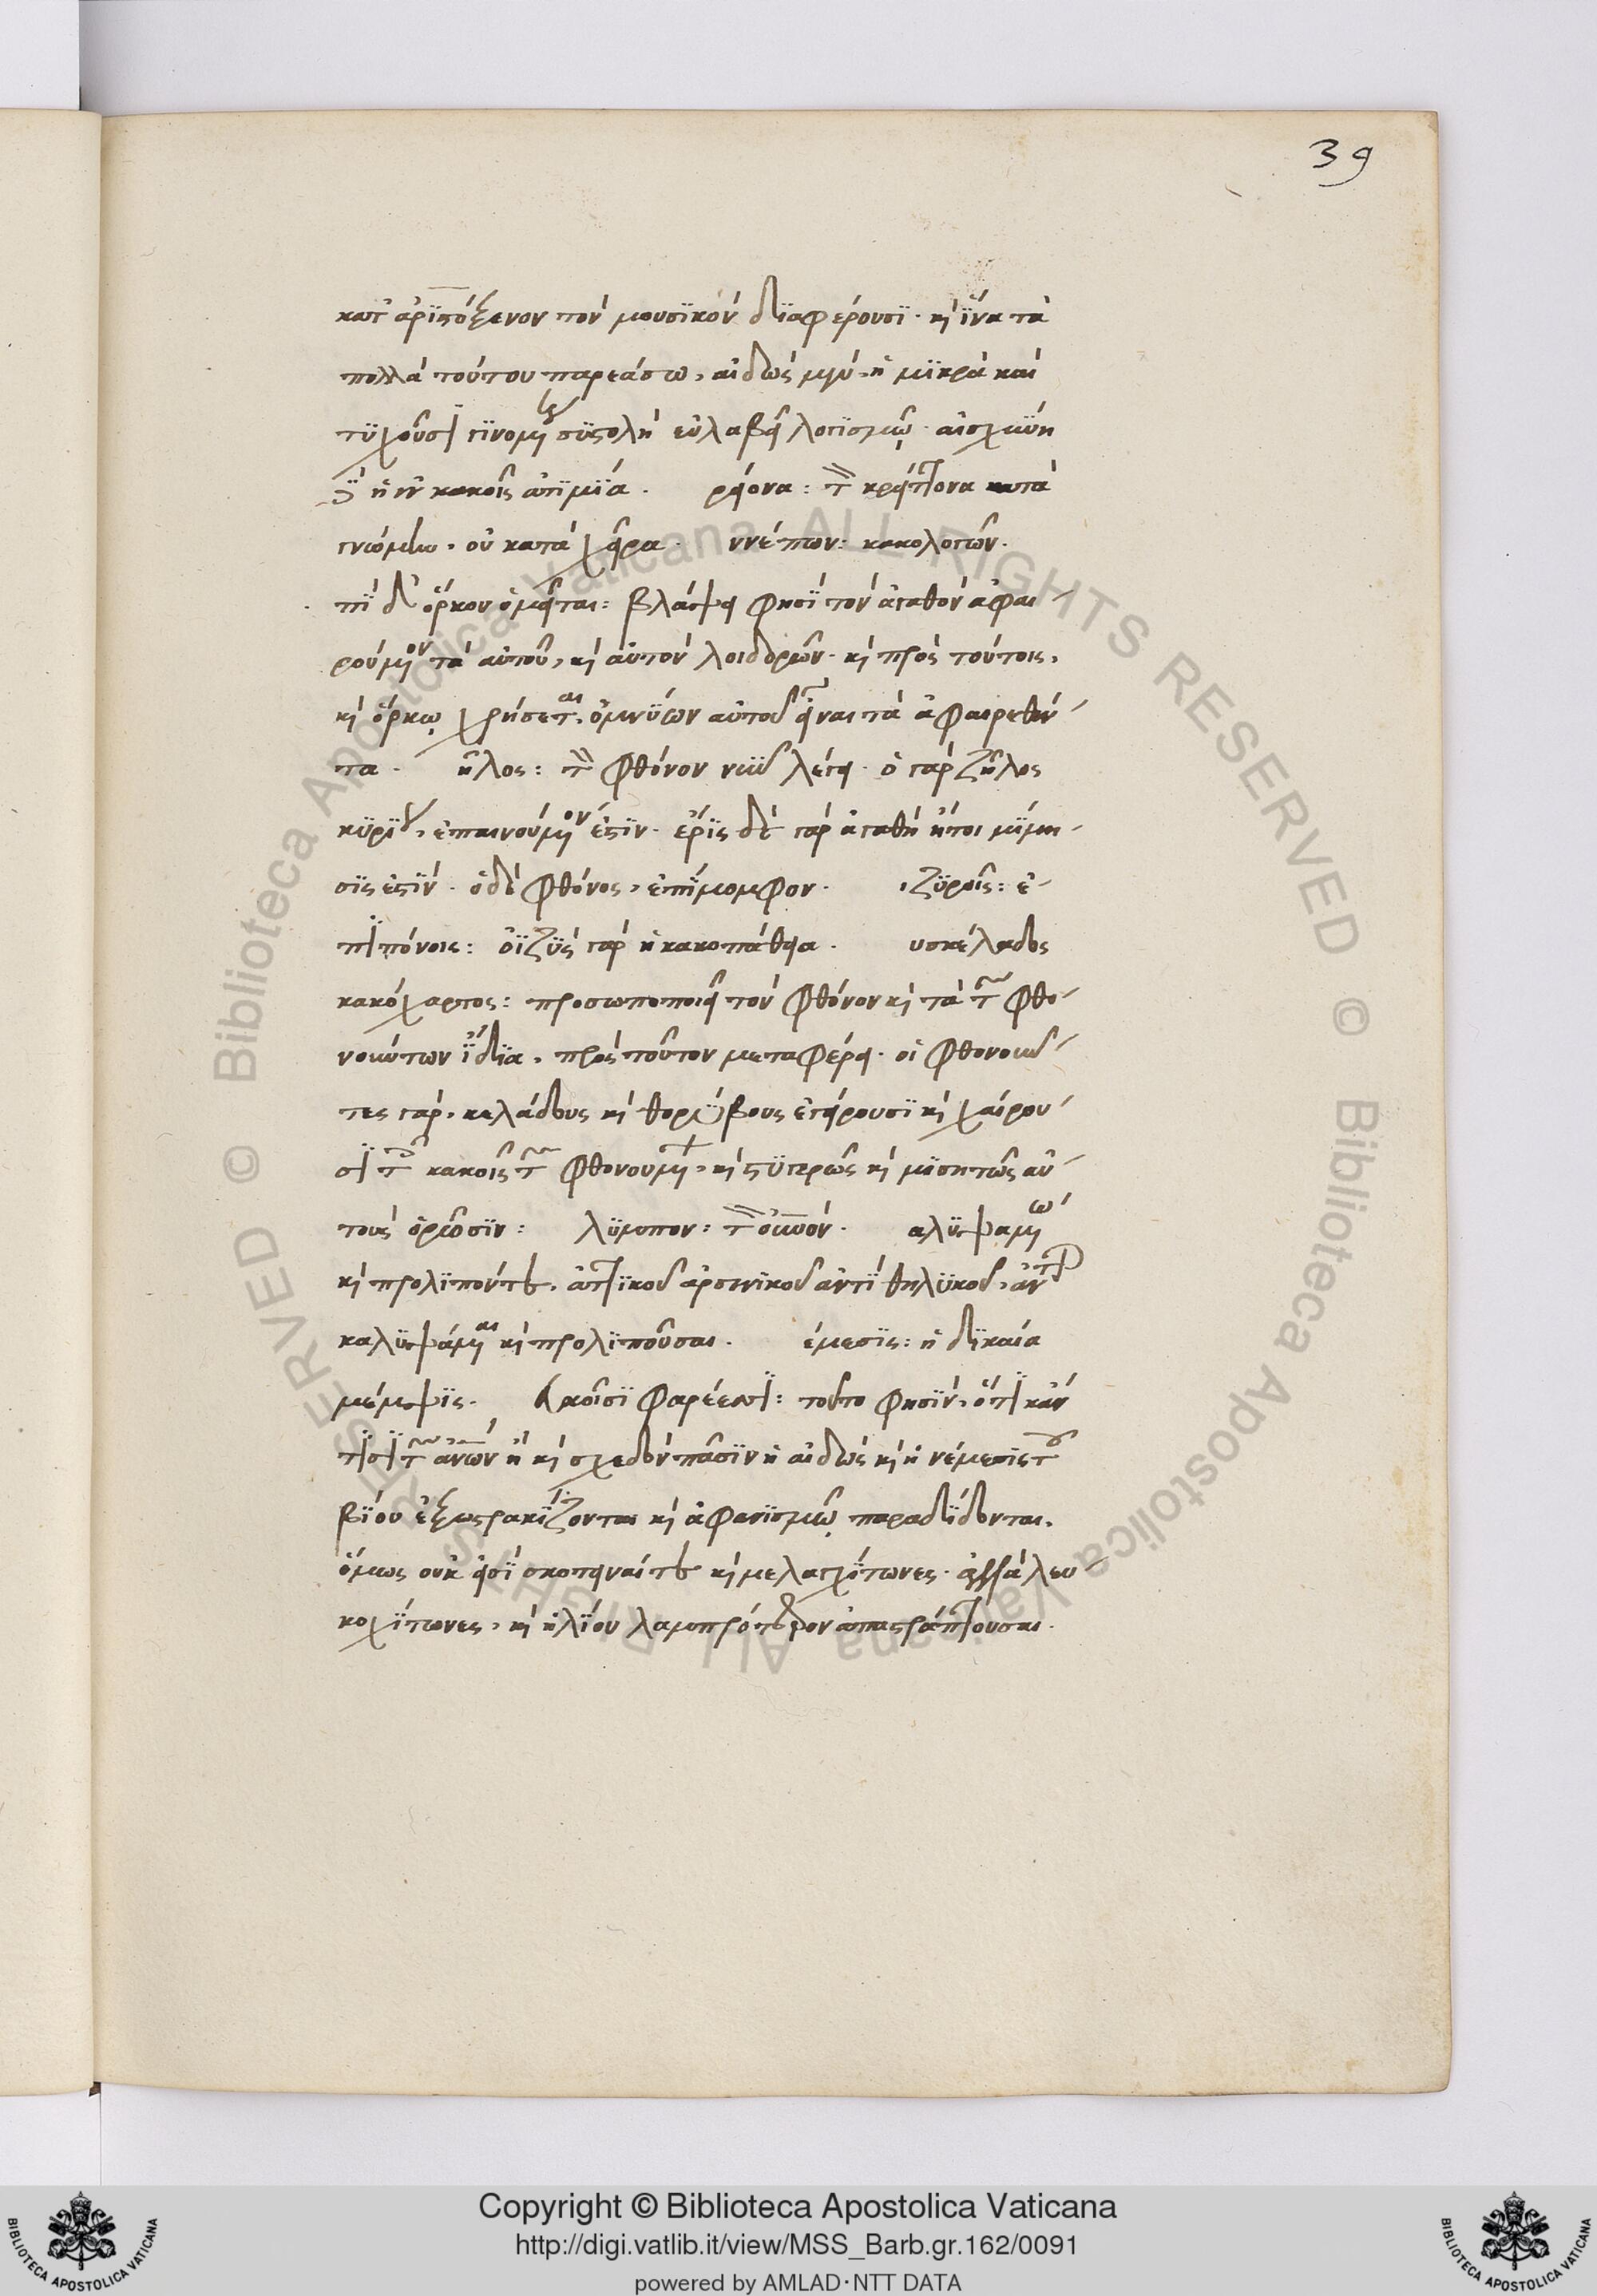 39
κατ' ἀριστόξενον τὸν μουσϊκὸν διαφέρουσϊ· κὶ ἵνα τὰ
πολλὰ τούτου παρεάσω, αἰδὼς μὲν, ἡ μϊκρὰ καὶ
τϋχοῦσϊ γϊνομένη συστολὴ εὐλαβεῖ λογϊσμῷ· αἰσχύνη
δὲ ἡ ἐν κακοῖς ἀτϊμΐα. ρείονα: τὸν κρείττονα κατὰ
γνώμην, οὐ κατὰ χεῖρα. ννέπων: κακολογῶν.
πὶ δ' ὅρκον ὀμεῖται: βλάψει φησὶ τὸν ἀγαθὸν ἀφαι-
ρούμενον τὰ αὐτοῦ, κὶ αὐτὸν λοιδορῶν· κὶ πρὸς τούτοις,
κὶ ὅρκῳ χρήσεται, ὀμνύων αὐτοῦ εἶναι τὰ ἀφαιρεθέν-
τα. ῆλος: τὸν φθόνον νῦν λέγει· ὁ γὰρ ζῆλος
κυρίως, ἐπαινούμενον ἐστϊν· ἔρϊς δὲ γὰρ ἀγαθὴ ἤτοι μΐμη-
σϊς ἐστΐν· ὁ δὲ φθόνος, ἐπΐμομφον. ϊζϋροῖς: ἐ-
πιπόνοις: ὀϊζὺς γὰρ ἡ κακοπάθεια. υσκέλαδος
κακόχαρτος: προσωποποιεῖ τὸν φθόνον κὶ τὰ τῶν φθο-
νούντων ἴδϊα, πρὸς τοῦτον μεταφέρει· οἱ φθονοῦν-
τες γὰρ, κελάδους κὶ θορύβους ἐγείρουσϊ κὶ χαίρου-
σϊ τοῖς κακοῖς τῶν φθονουμένων, κὶ στϋγερῶς κὶ μϊσητῶς αὐ-
τοὺς ὁρῶσϊν: λϋμπον: τὸν οὐρανόν. αλϋψαμένω
κὶ προλϊπόντε, ἀττϊκοῦ ἀρσενϊκοῦ ἀντϊ θηλϋκοῦ, ἀντὶ τοῦ
καλϋψάμεναι κὶ προλϊποῦσαι. έμεσϊς: ἡ δϊκαία
μέμψϊς. λευκοῖσϊ φαρέεσσϊ: τοῦτο φησΐν, ὅτϊ κἂν
τϊσϊ τῶν ἀνθρώπων ἢ κὶ σχεδὸν πᾶσϊν ἡ αἰδὼς κὶ ἡ νέμεσϊς τοῦ
βΐου ἐξωστρακΐζονται κὶ ἀφανϊσμῷ παραδΐδονται,
ὅμως οὐκ εἰσὶ σκοτειναί τε κὶ μελαγχΐτωνες· ἀλλὰ λευ-
κοχΐτωνες, κὶ ἡλΐου λαμπρότερον ἀπαστράπτουσαι.
Copyright © Biblioteca Apostolica Vaticana
http://digi.vatlib.it/view/MSS_Barb.gr.162/0091
powered by AMLAD·NTT DATA